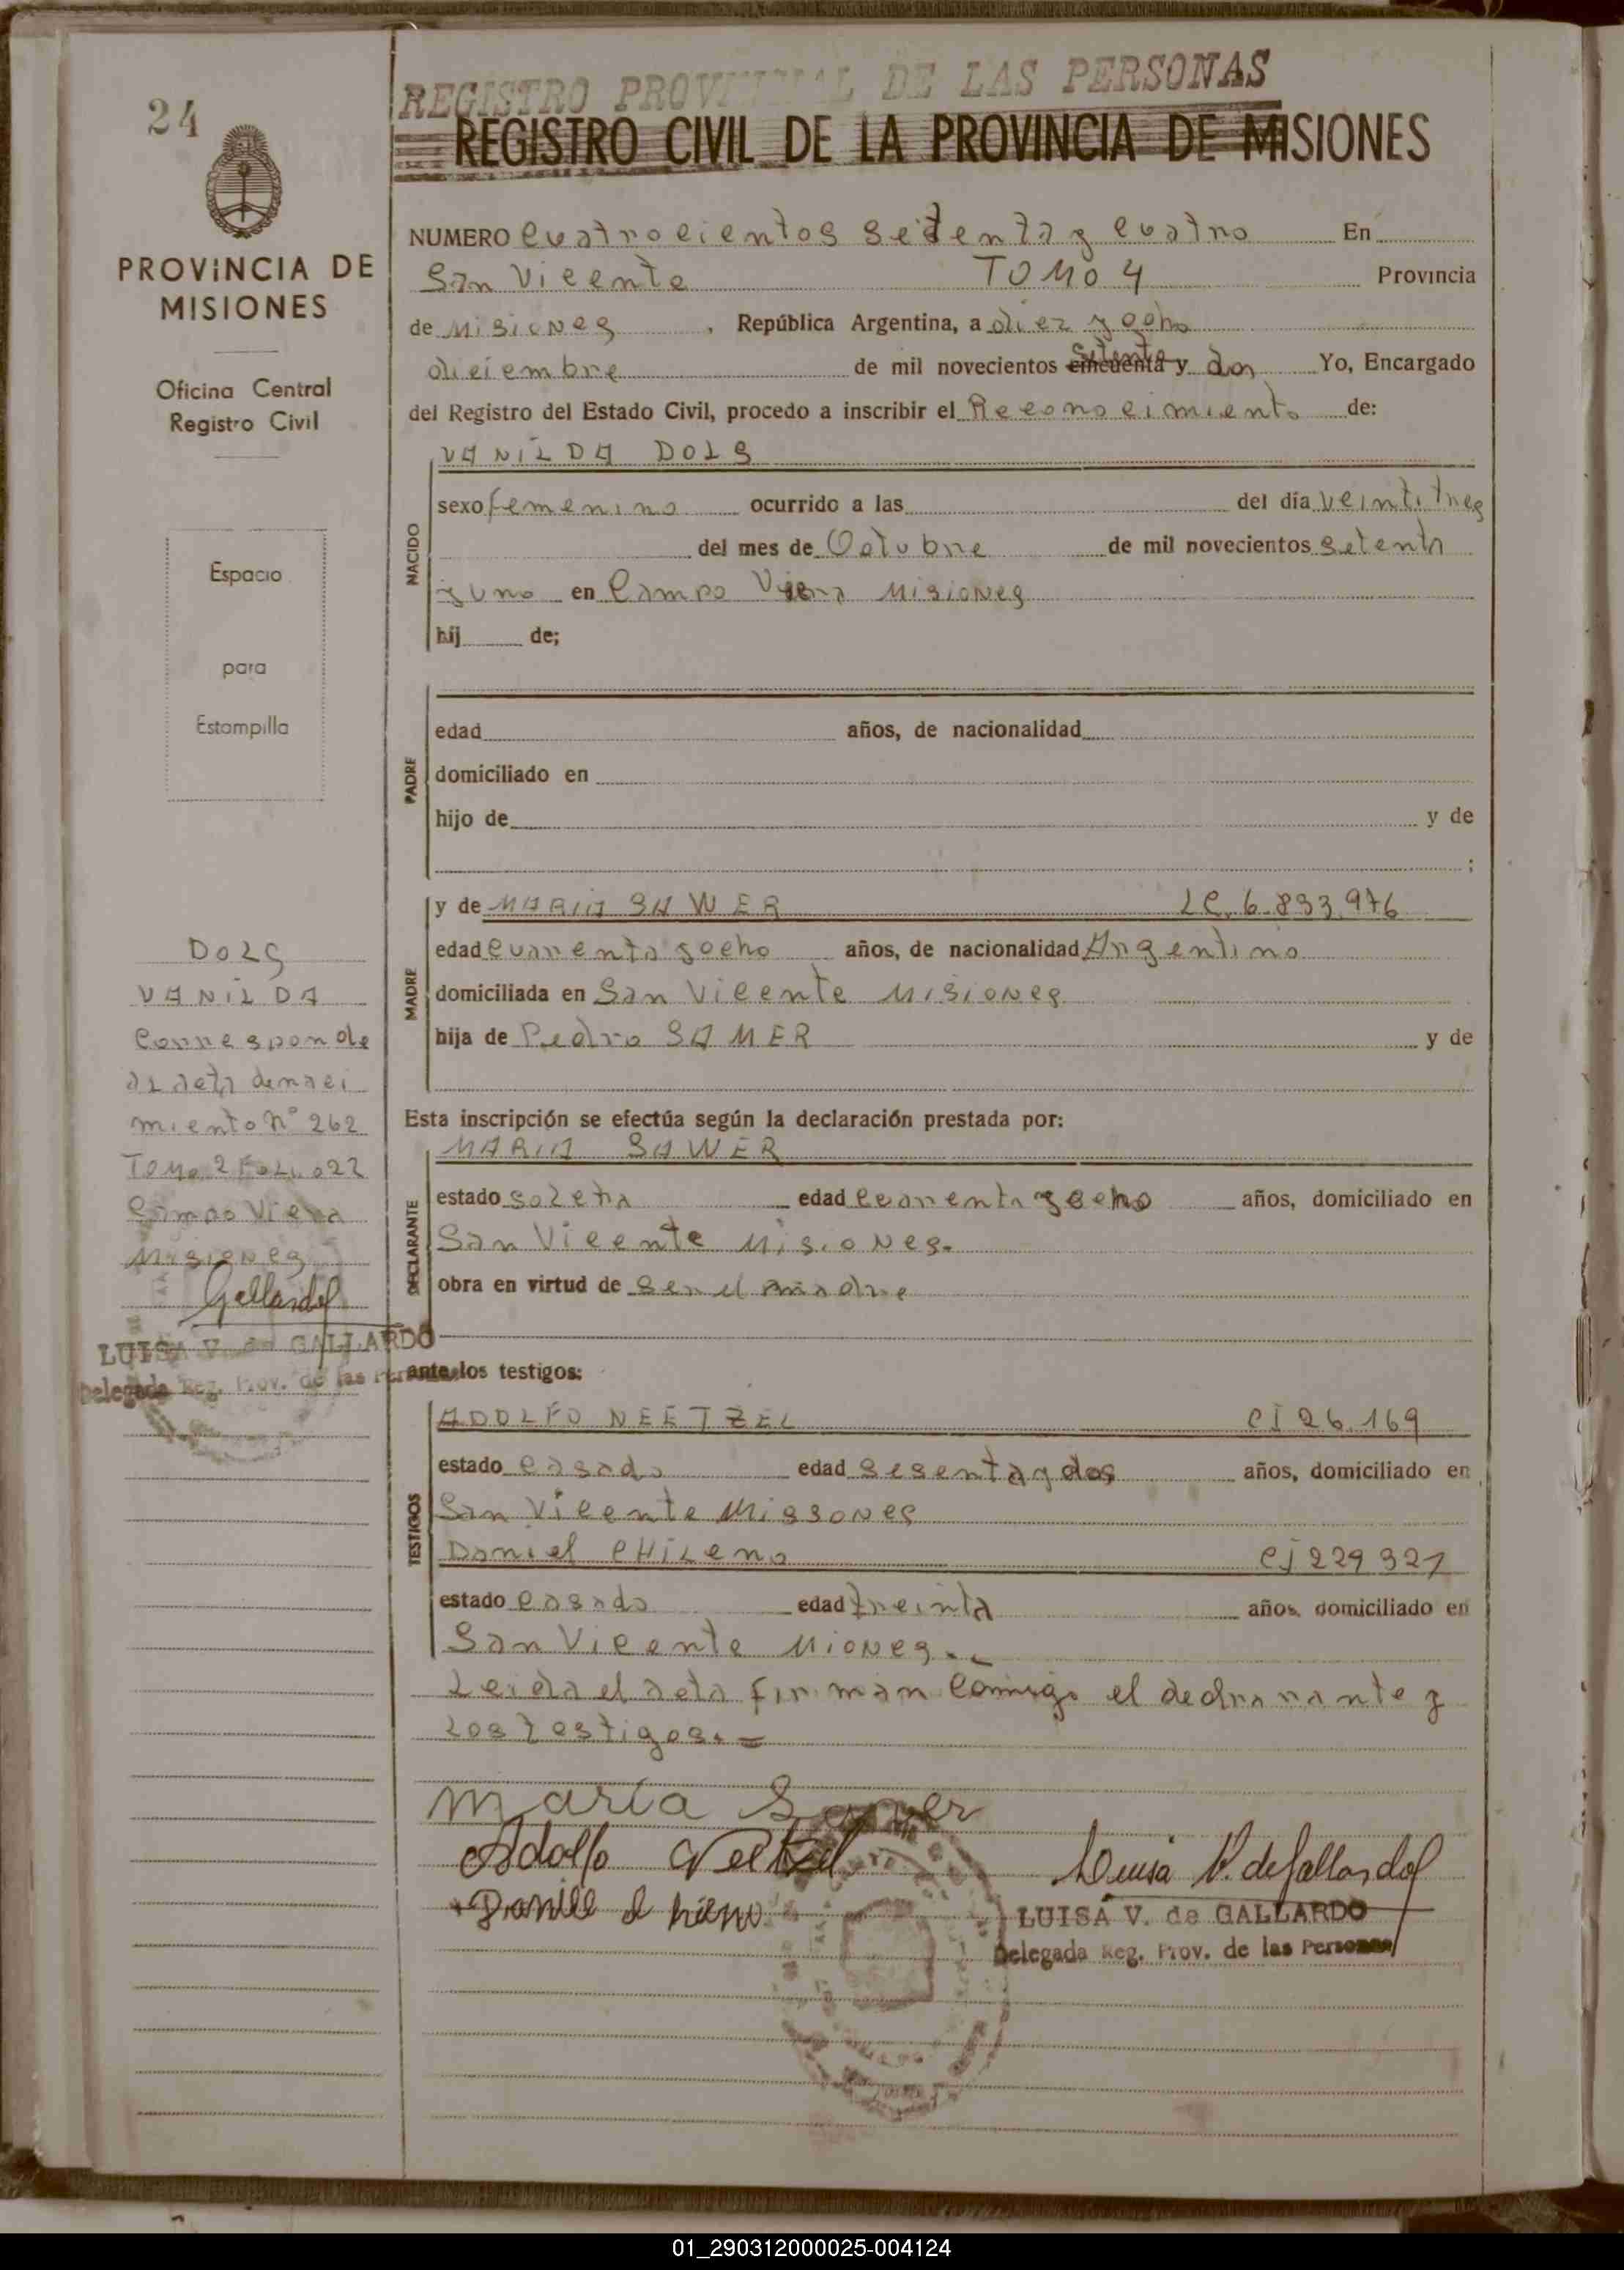 24
PROVINCIA DE
MISIONES
Oficina Central
Registro Civil
Espacio
para
Estampilla
DOLS
VANILDA
Corresponde
al acta de naci
miento Nº 262
Tomo 2 Folio 22
Campo Viera
Misiones
Gallardo
LUISA V. de GALLARDO
Delegada Reg. Prov. de las Personas
REGISTRO PROVINCIAL DE LAS PERSONAS
REGISTRO CIVIL DE LA PROVINCIA DE MISIONES
NUMERO Cuatrocientos setenta y cuatro En
San Vicente TOMO 4 Provincia
de Misiones, República Argentina, a diez y ocho
diciembre de mil novecientos cincuenta setenta y dos Yo, Encargado
del Registro del Estado Civil, procedo a inscribir el Reconocimiento de:
VANILDA DOLS
NACIDO
sexo femenino ocurrido a las del día veintitres
del mes de Octubre de mil novecientos setenta
y uno en Campo Viera Misiones
hij de;
PADRE
edad años, de nacionalidad
domiciliado en
hijo de y de
;
MADRE
y de MARIA SAWER LC. 6.833.976
edad cuarenta y ocho años, de nacionalidad Argentino
domiciliada en San Vicente Misiones
hija de Pedro SAMER y de
Esta inscripción se efectúa según la declaración prestada por:
DECLARANTE
MARIA SAWER
estado soltera edad cuarenta y ocho años, domiciliado en
San Vicente Misiones.
obra en virtud de ser el madre
ante los testigos:
TESTIGOS
ADOLFO NEETZEL CI 26.169
estado casado edad sesenta y dos años, domiciliado en
San Vicente Missones
Daniel CHILENO CI 229 321
estado casado edad treinta años, domiciliado en
San Vicente Miones.
Leida el acta firman comigo el declarante y
los testigos. =
maría Sawer
Adolfo Neetzel
Luisa V. de Gallardo
LUISA V. de GALLARDO
Delegada Reg. Prov. de las Personas
01_290312000025-004124